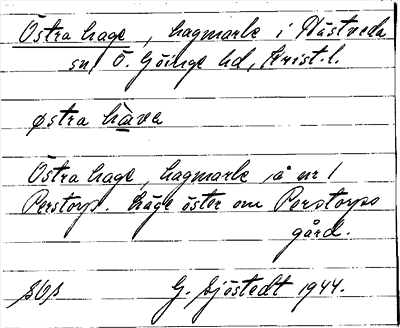 Östra hage, hagmark i Hästveda
sn, Ö. Göinge hd, Krist. l.
østra hàva
Östra hage, hagmark å nr 1
Perstorp. Läge öster om Perstorps
gård.
G. Sjöstedt 1944.